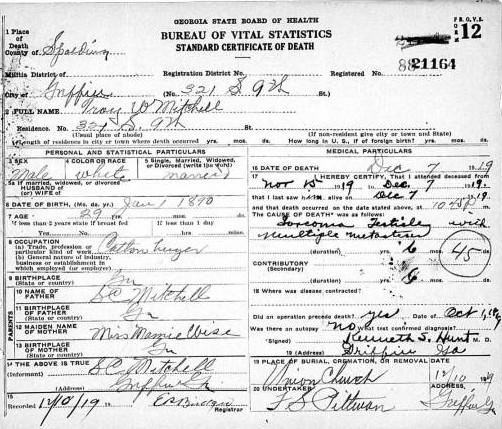 GEORGIA STATE BOARD OF HEALTH
BUREAU OF VITAL STATISTICS
STANDARD CERTIFICATE OF DEATH
FORM V.S. 12
21164
1 Place of Death
County of Spalding
Militia District of
Registration District No.
Registered No.
City of Griffin (No. 321 S. 9th St.)
2 FULL NAME Troy W Mitchell
Residence. No. 321 S. 9th St.
(Usual place of abode) (If non-resident give city or town and State)
Length of residence in city or town where death occurred yrs. mos. ds. How long in U. S., if of foreign birth? yrs. mos. ds.
PERSONAL AND STATISTICAL PARTICULARS
3 SEX
Male
4 COLOR OR RACE
white
5 Single, Married, Widowed, or Divorced (write the word)
married
5a If married, widowed, or divorced
HUSBAND of
(or) WIFE of
6 DATE OF BIRTH, (Mo. da. yr.) Jan 1 1890
7 AGE 29 yrs. mos. ds.
If less than 2 years state if breast fed
If less than 1 day
Yes No hrs. mins.
8 OCCUPATION
(a) Trade, profession, or particular kind of work Cotton buyer
(b) General nature of industry, business or establishment in which employed (or employer)
9 BIRTHPLACE
(State or country) Ga
PARENTS
10 NAME OF FATHER S.C. Mitchell
11 BIRTHPLACE OF FATHER
(State or country) Ga
12 MAIDEN NAME OF MOTHER Miss Mamie Wise
13 BIRTHPLACE OF MOTHER
(State or country) Ga
14 THE ABOVE IS TRUE
(Informant) S.C. Mitchell
(Address) Griffin Ga
15
Recorded 12/10/19
Registrar
MEDICAL PARTICULARS
16 DATE OF DEATH Dec 7 19
17 I HEREBY CERTIFY, That I attended deceased
from Nov 15 1919 to Dec 7 1919.
that I last saw him alive on Dec 7 19
and that death occurred on the date stated above, at
The CAUSE OF DEATH* was as follows:
Sarcoma Testicle with
multiple metastases
yrs. 6 mos. ds.
45
CONTRIBUTORY
(Secondary)
yrs. 6 mos. ds.
18 Where was disease contracted?
Did an operation precede death? yes Date of Oct 1, 1919
Was there an autopsy no What test confirmed diagnosis?
(Signed) Kenneth S. Hunt M. D.
19 (Address) Griffin Ga
19 PLACE OF BURIAL, CREMATION, OR REMOVAL DATE
Union Church 12/10 19
20 UNDERTAKER ADDRESS,
F S Pittman Griffin Ga